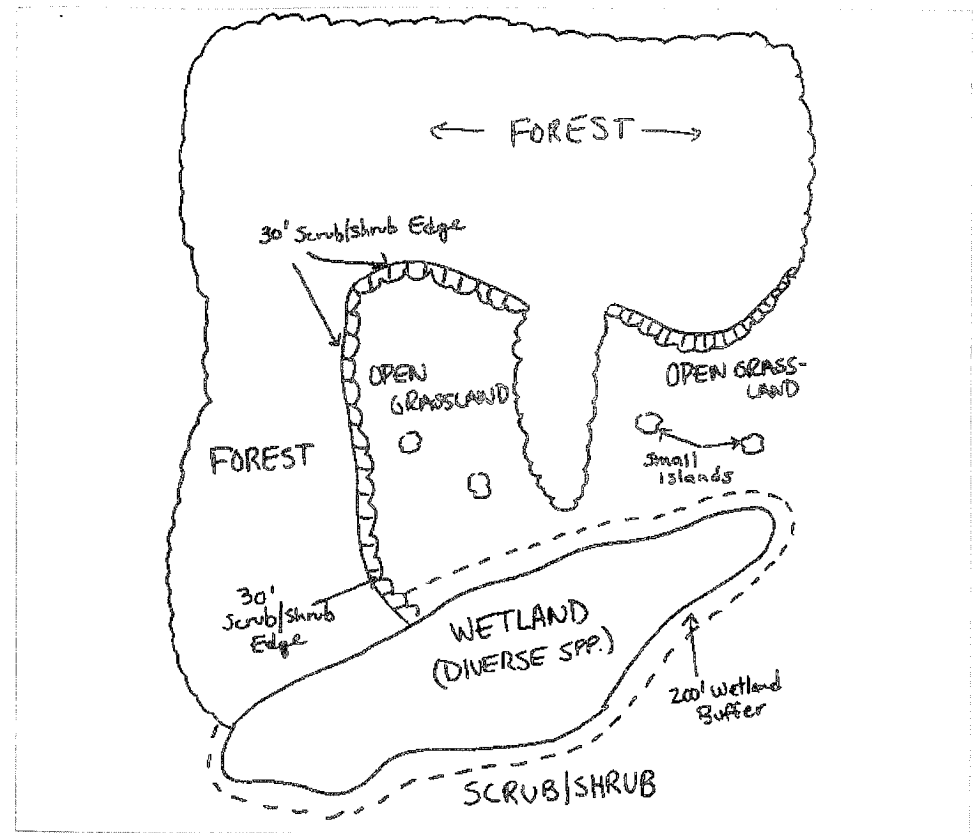 FOREST
30' Scrub/shrub Edge
OPEN
GRASSLAND
OPEN GRASS-
LAND
FOREST
Small
islands
30'
Scrub/shrub
Edge
WETLAND
(DIVERSE SPP.)
200' Wetland
Buffer
SCRUB/SHRUB